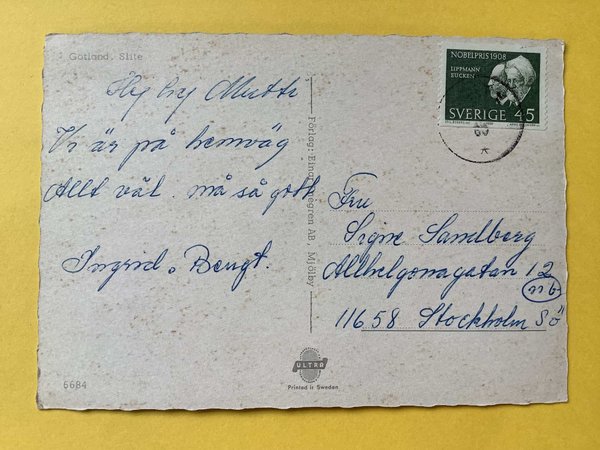 Gotland. Slite
NOBELPRIS 1908
LIPPMANN
EUCKEN
SVERIGE 45
Hej hej Mutti
Vi är på hemväg
Allt väl. må så gott
Ingrid o Bengt.
Fru
Signe Sandberg
Allhelgonagatan 12
nb
116 58 Stockholm Sö
Förlag: Einar negren AB, Mjölby
ULTRA
Printed in Sweden
6684